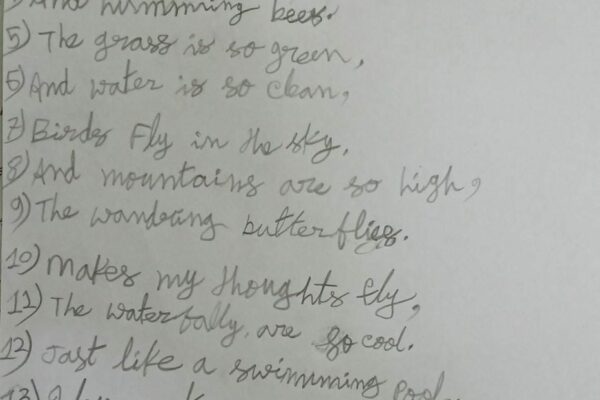 And humming bees.
5) The grass is so green,
6) And water is so clean,
7) Birds Fly in the sky.
8) And mountains are so high,
9) The wandering butterflies.
10) Makes my thoughts fly,
11) The waterfally, are so cool.
12) Jast like a swimming pool
13)